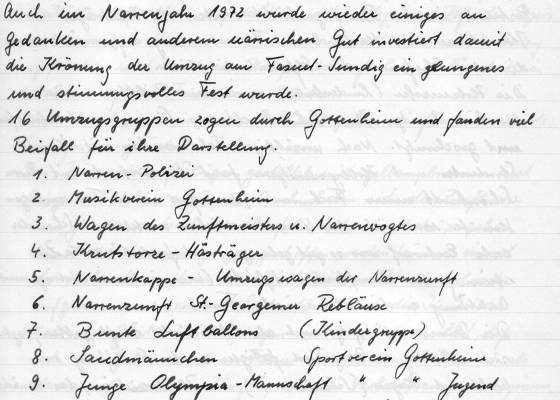 Auch im Narrenjahr 1972 wurde wieder einiges an
Gedanken und anderem närrischen Gut investiert damit
die Krönung der Umzug am Fasnet-Sundig ein gelungenes
und stimmungsvolles Fest wurde.
16 Umzugsgruppen zogen durch Gottenheim und fanden viel
Beifall für ihre Darstellung.
1. Narren-Polizei
2. Musikverein Gottenheim
3. Wagen des Zunftmeisters u. Narrenvogtes
4. Krutstorze - Hästräger
5. Narrenkappe - Umzugswagen der Narrenzunft
6. Narrenzunft St. Georgener Rebläuse
7. Bunte Luftballons (Kindergruppe)
8. Sandmännchen Sportverein Gottenheim
9. Junge Olympia-Mannschaft " " Jugend